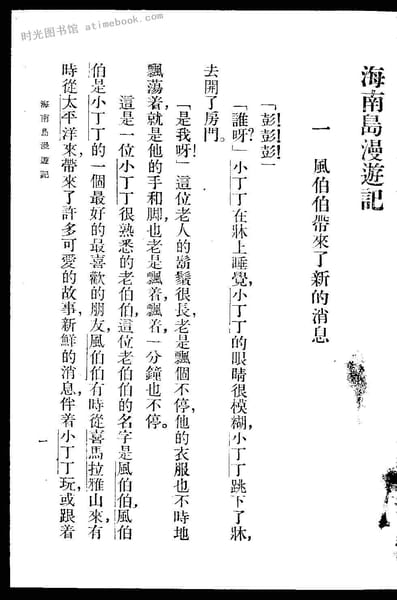 时光图书馆 atimebook.com
海南島漫遊記
一 風伯伯帶來了新的消息
「彭!彭!彭!」
「誰呀?」小丁丁在牀上睡覺,小丁丁的眼睛很模糊,小丁丁跳下了牀,
去開了房門。
「是我呀!」這位老人的鬍鬚很長,老是飄個不停,他的衣服也不時地
飄蕩着,就是他的手和脚也老是飄着,飄着,一分鐘也不停。
這是一位小丁丁很熟悉的老伯伯,這位老伯伯的名字是風伯伯,風伯
伯是小丁丁的一個最好的最喜歡的朋友,風伯伯有時從喜馬拉雅山來,有
時從太平洋來,帶來了許多可愛的故事,新鮮的消息,伴着小丁丁玩,或跟着
海南島漫遊記
一